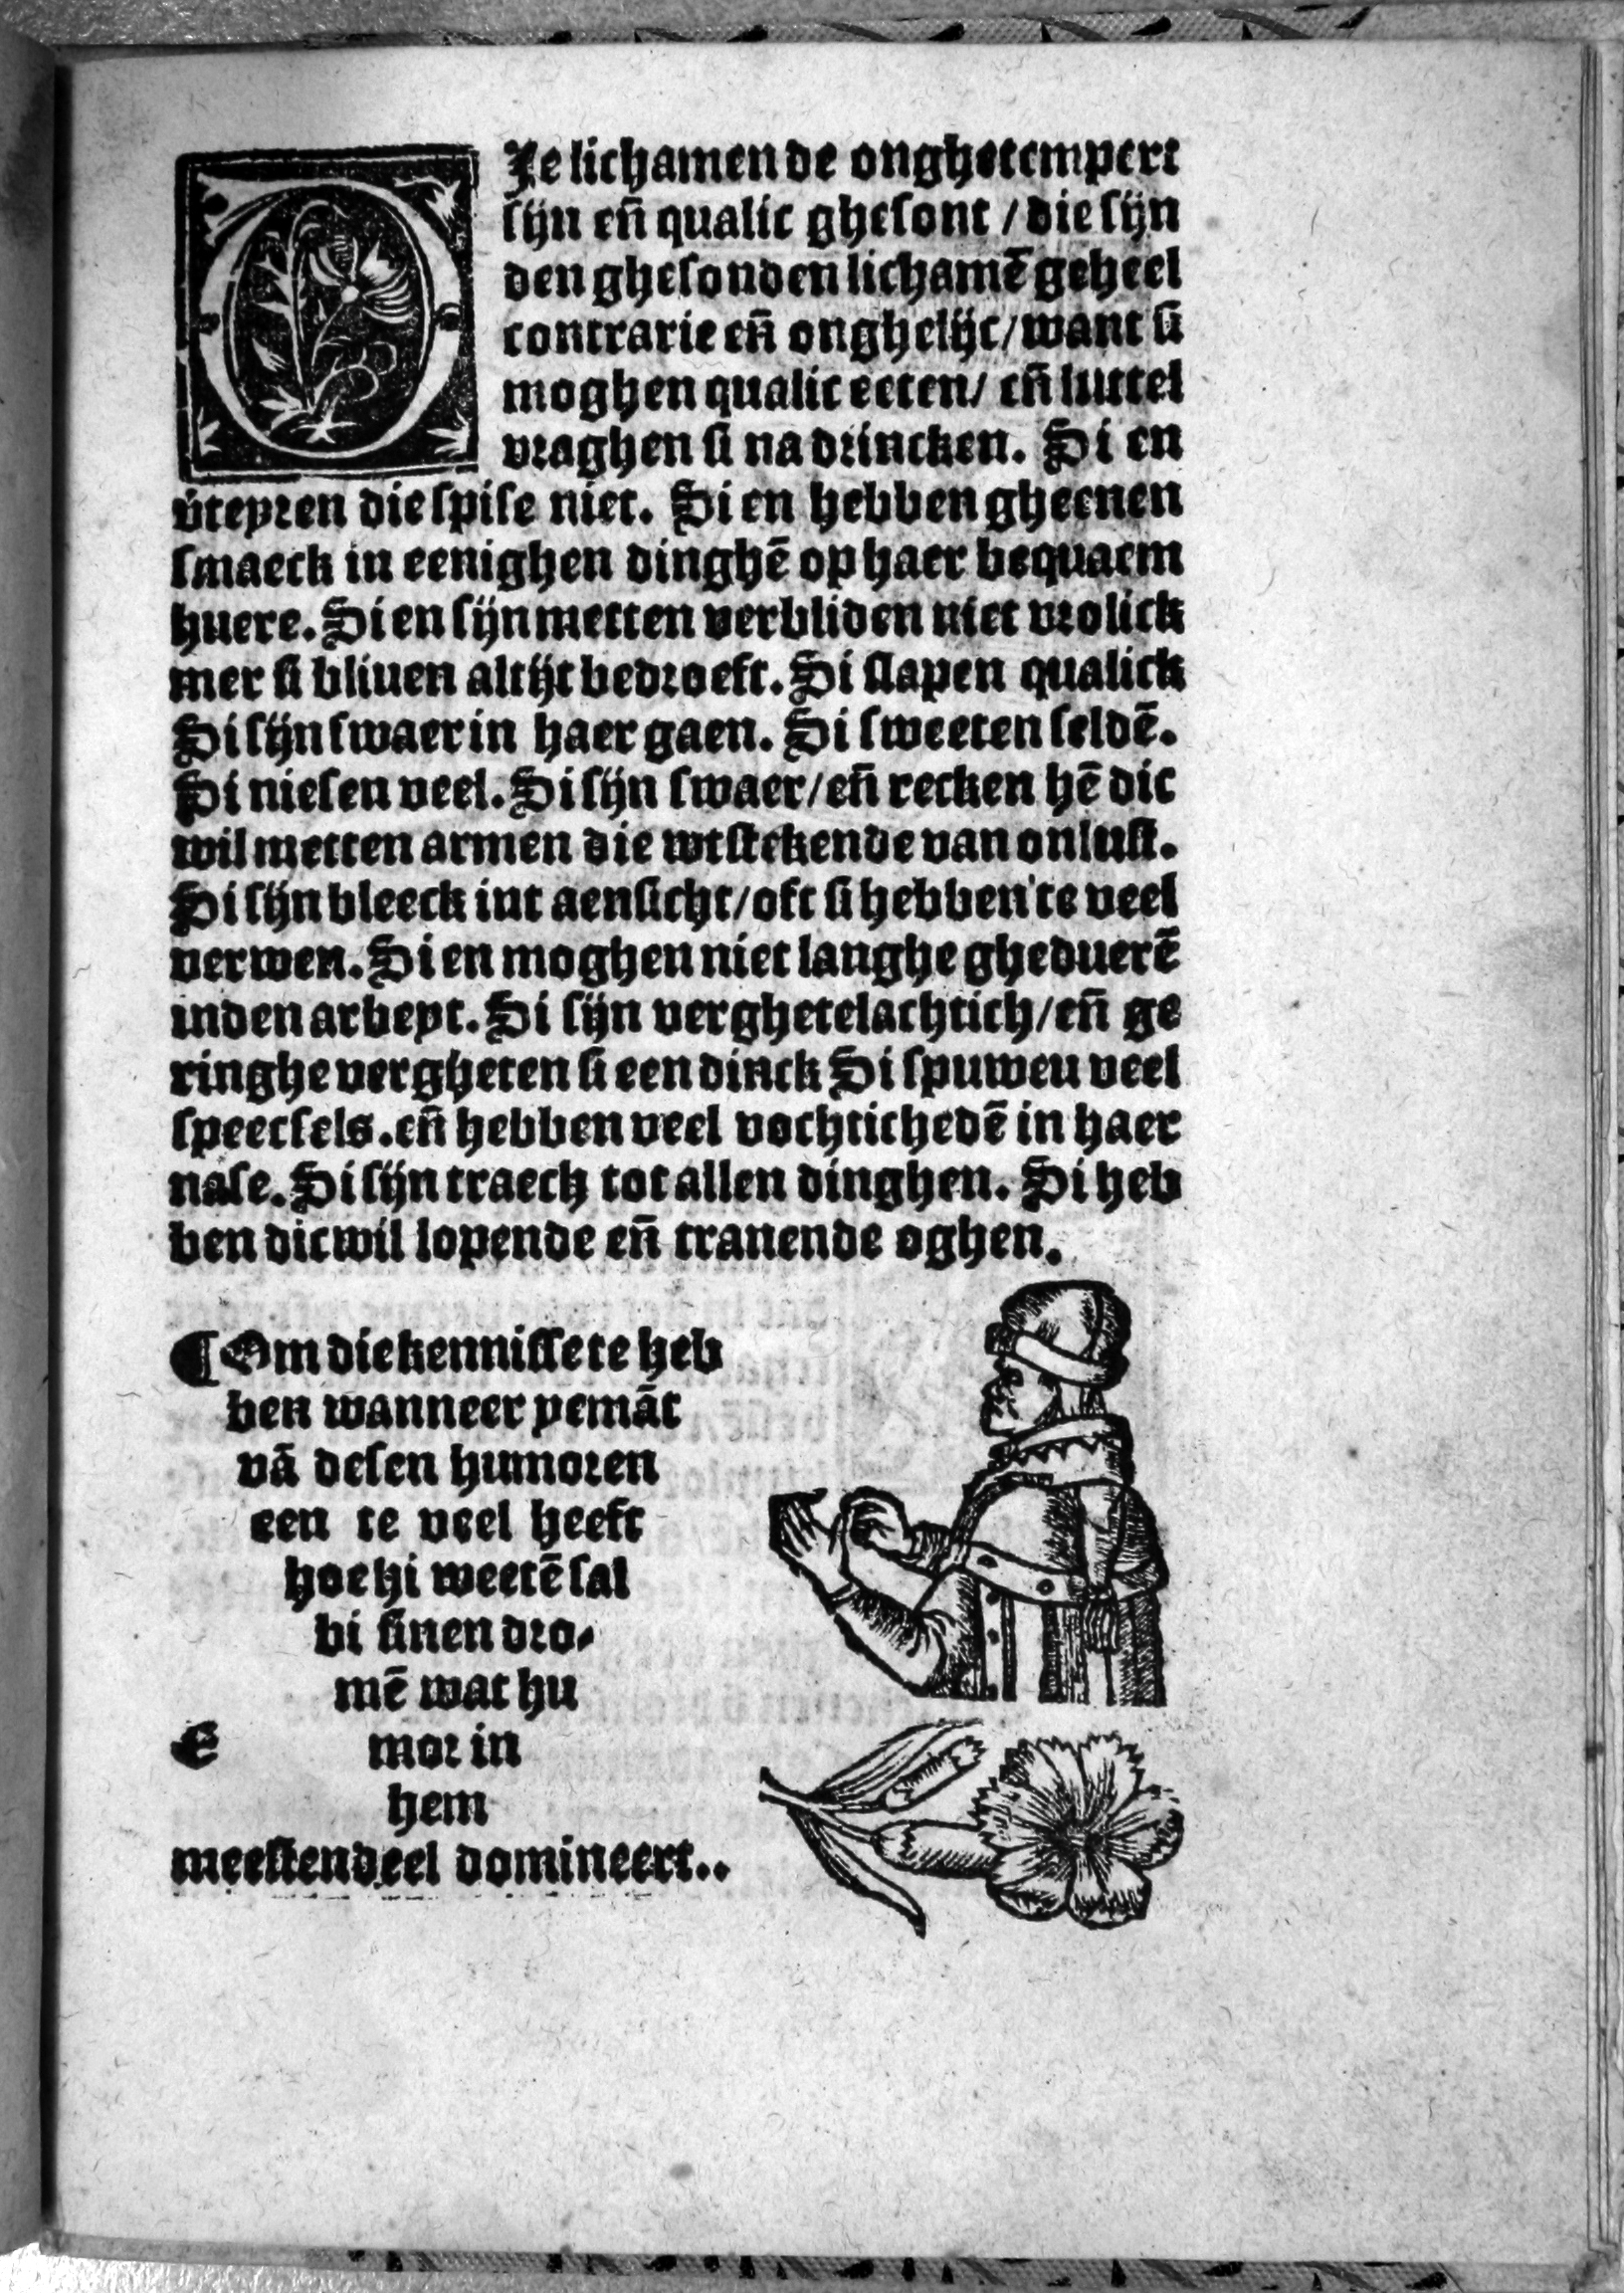 DIe lichamen de onghetempert
sijn eñ qualic ghesont / die sijn
den ghesonden lichamē geheel
contrarie eñ onghelijc / want si
moghen qualic eeten / eñ luttel
vraghen si na drincken. Si en
v̄teyren die spise niet. Si en hebben gheenen
smaeck in eenighen dinghē op haer bequaem
huere. Si en sijn metten verbliden niet vrolick
mer si bliuen altijt bedroeft. Si slapen qualick
Si sijn swaer in haer gaen. Si sweeten seldē.
Si niesen veel. Si sijn swaer / eñ recken hē dic
wil metten armen die wtstekende van onlust.
Si sijn bleeck int aensicht / oft si hebben te veel
verwen. Si en moghen niet langhe gheduerē
inden arbeyt. Si sijn verghetelachtich / eñ ge
ringhe vergheten si een dinck Si spuweu veel
speecsels. eñ hebben veel vochtichedē in haer
nase. Si sijn traech tot allen dinghen. Si heb
ben dicwil lopende eñ tranende oghen.
¶ Om die kennisse te heb
ben wanneer yemāt
vā desen humoren
een te veel heeft
hoe hi weetē sal
bi sinen dro⸗
mē wat hu
E mor in
hem
meestendeel domineert..